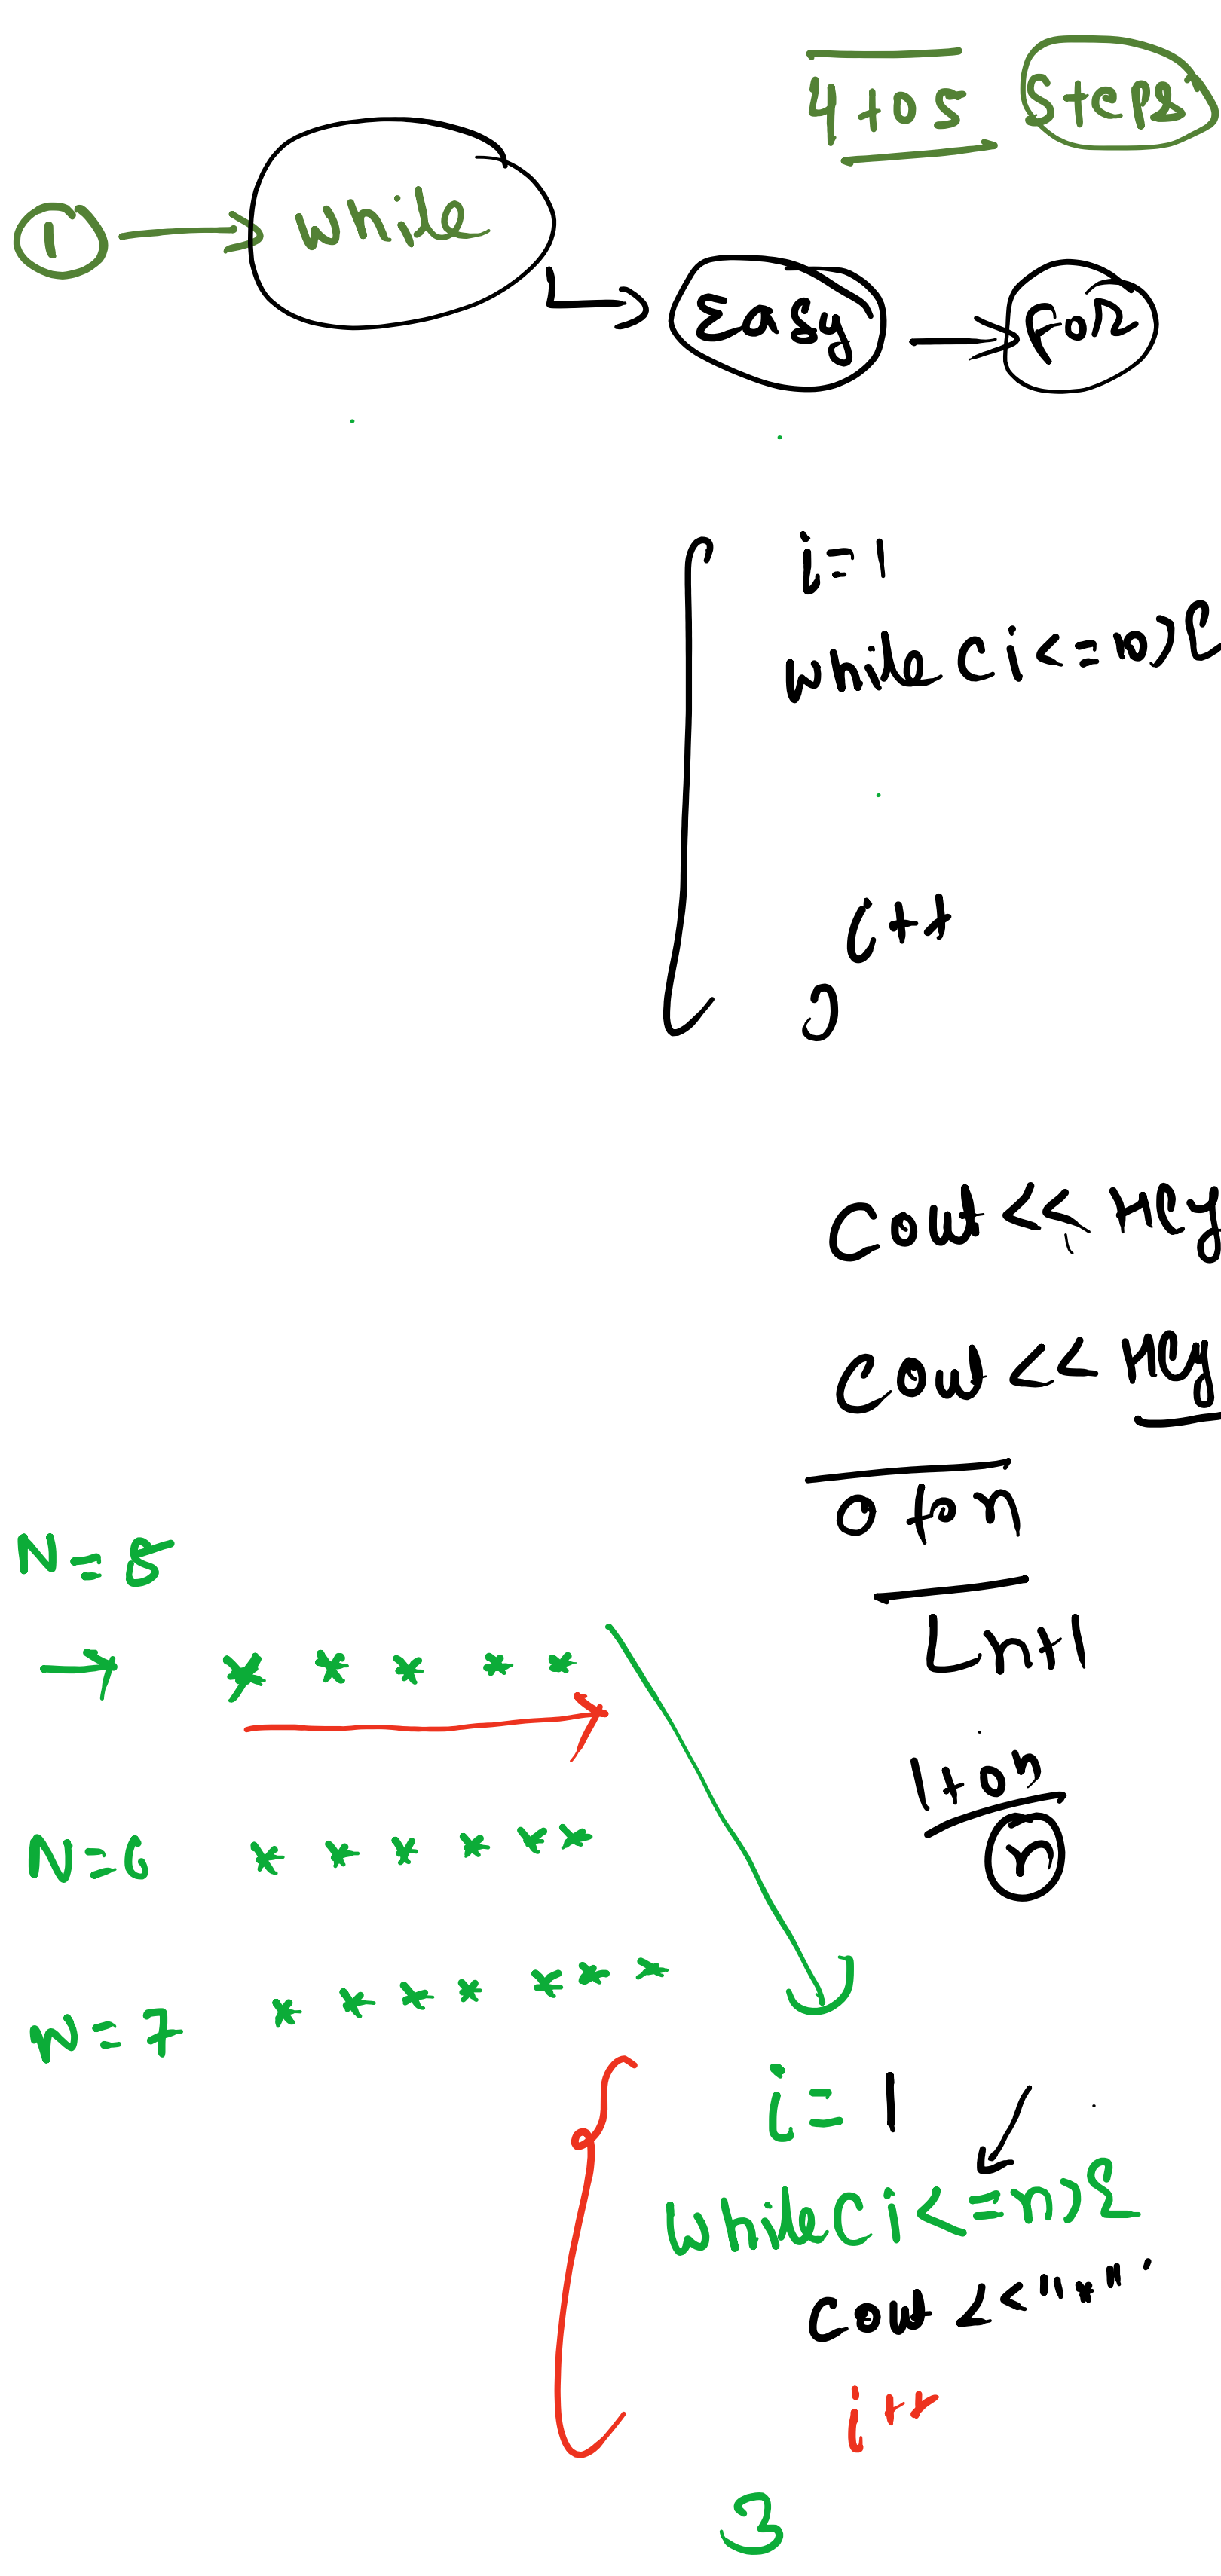 4 to 5 Steps
1 → while
Easy → for
i = 1
while (i <= n) {
i++
}
Cout << Hey
Cout << Hey
0 to n
Ln+1
1 to n
n
N = 5
→ * * * * *
N = 6 * * * * * *
N = 7 * * * * * * *
i = 1
while (i <= n) {
cout << "*"
i++
}